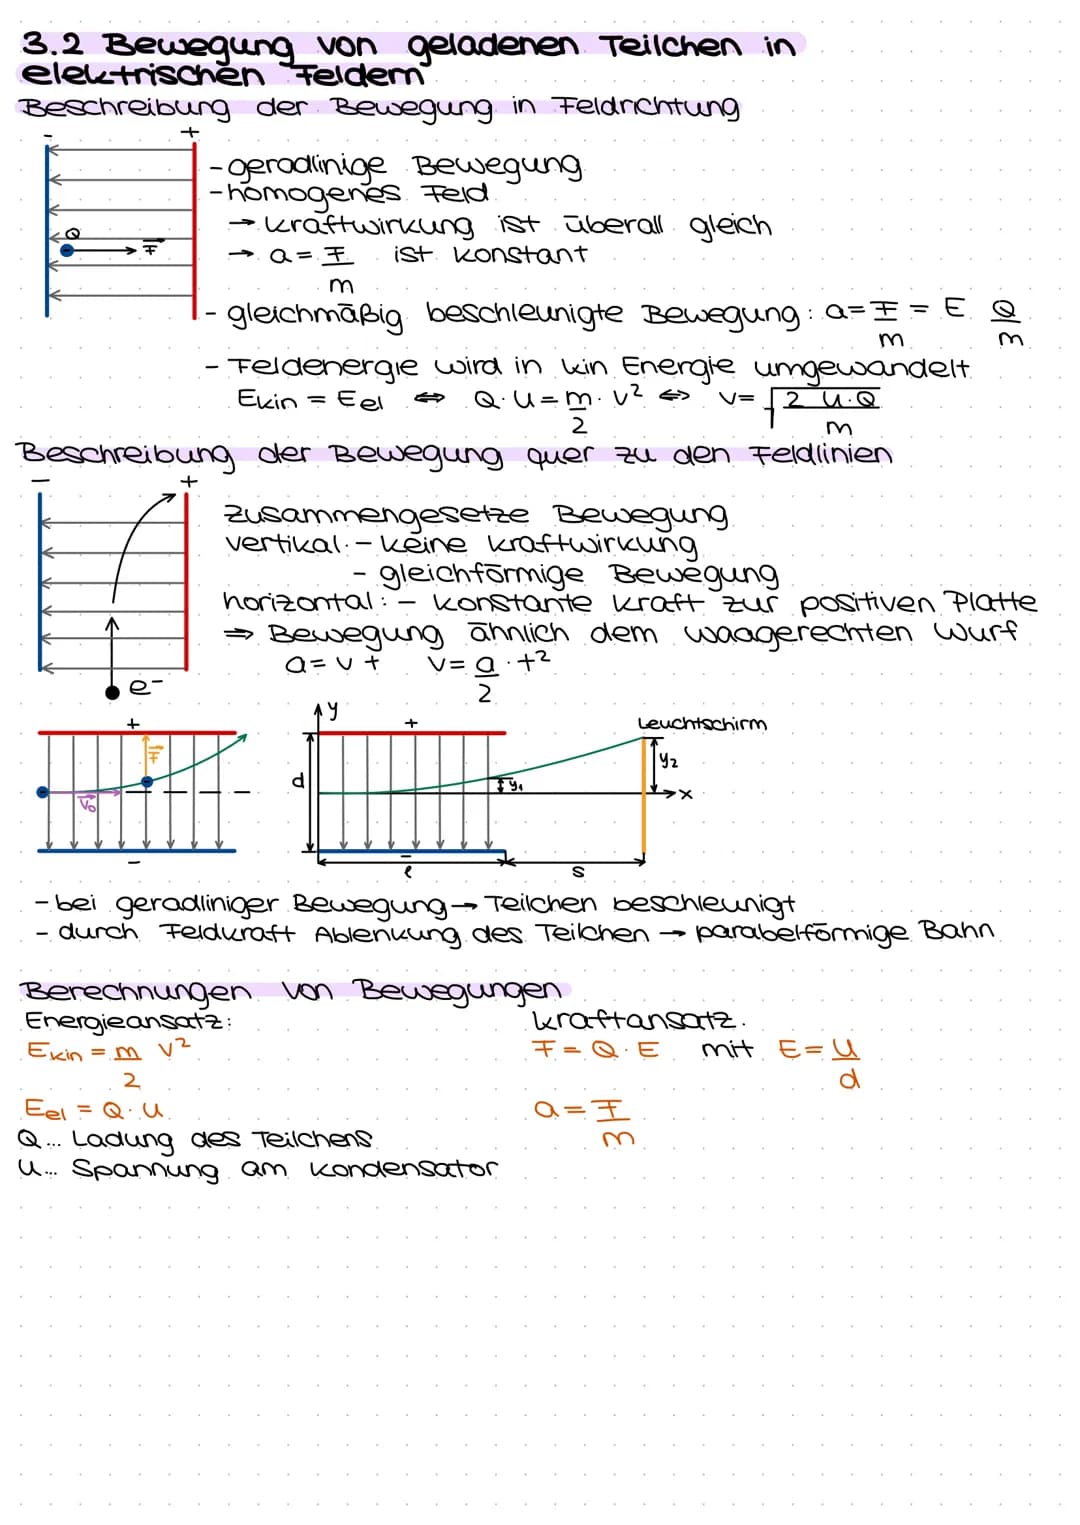 3.2 Bewegung von geladenen Teilchen in
elektrischen Feldern
Beschreibung der Bewegung in Feldrichtung
- +
- geradlinige Bewegung
- homogenes Feld
→ Kraftwirkung ist überall gleich
Q F
→ a = F/m ist konstant
- gleichmäßig beschleunigte Bewegung: a = F/m = E Q/m
- Feldenergie wird in kin Energie umgewandelt
Ekin = Eel ⇔ Q·U = m/2 · v² ⇔ v = √(2 U·Q/m)
Beschreibung der Bewegung quer zu den Feldlinien
- +
zusammengesetze Bewegung
vertikal: - keine Kraftwirkung
- gleichförmige Bewegung
horizontal: - konstante Kraft zur positiven Platte
⇒ Bewegung ähnlich dem waagerechten Wurf
a = v t v = a/2 · t²
e-
+ F v₀ -
y + Leuchtschirm
d y₁ y₂ x
- l s
- bei geradliniger Bewegung → Teilchen beschleunigt
- durch Feldkraft Ablenkung des Teilchen → parabelförmige Bahn
Berechnungen von Bewegungen
Energieansatz: Kraftansatz:
Ekin = m/2 v² F = Q · E mit E = U/d
Eel = Q · U a = F/m
Q... Ladung des Teilchens
U... Spannung am Kondensator